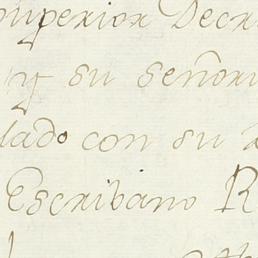 superior Decr
y su señori
lado con su
Escribano R